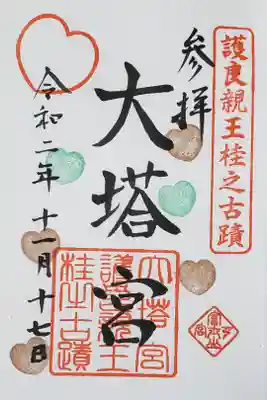 護良親王桂之古蹟
参拝
大塔宮
令和二年十一月十七日
大塔宮
護良親王
桂之古蹟